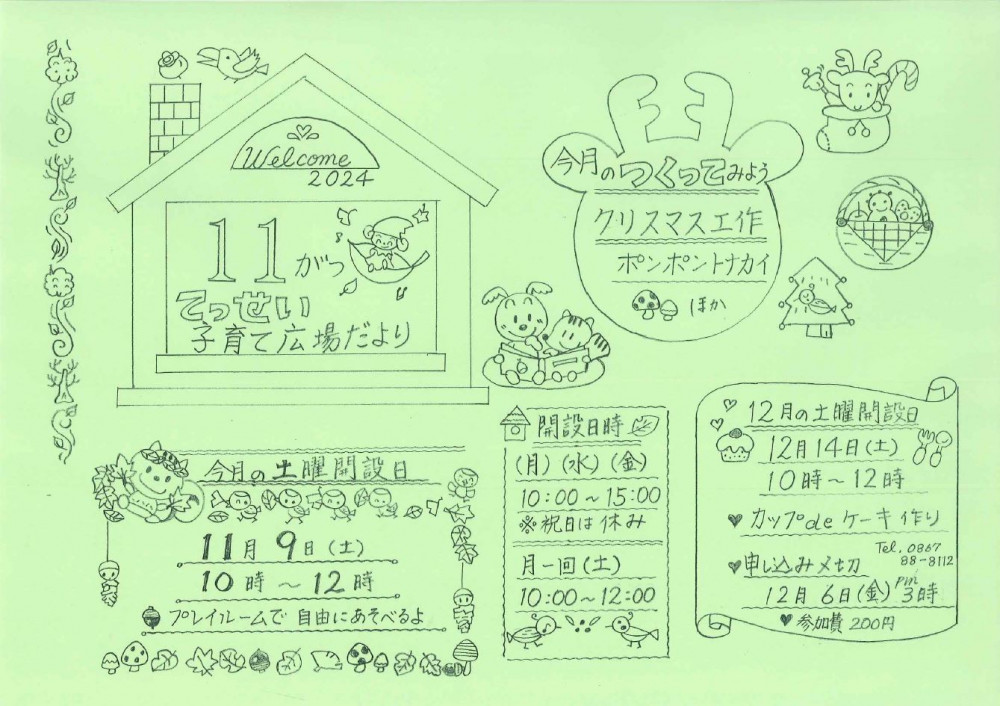 Welcome
2024
11がつ
てっせい
子育て広場だより
今月のつくってみよう
クリスマス工作
ポンポントナカイ
ほか
今月の土曜開設日
11月9日(土)
10時～12時
プレイルームで自由にあそべるよ
開設日時
(月)(水)(金)
10:00～15:00
※祝日は休み
月一回(土)
10:00～12:00
12月の土曜開設日
12月14日(土)
10時～12時
♥カップdeケーキ作り
Tel. 0867
88-8112
♥申し込み〆切
12月6日(金)PM3時
♥参加費200円